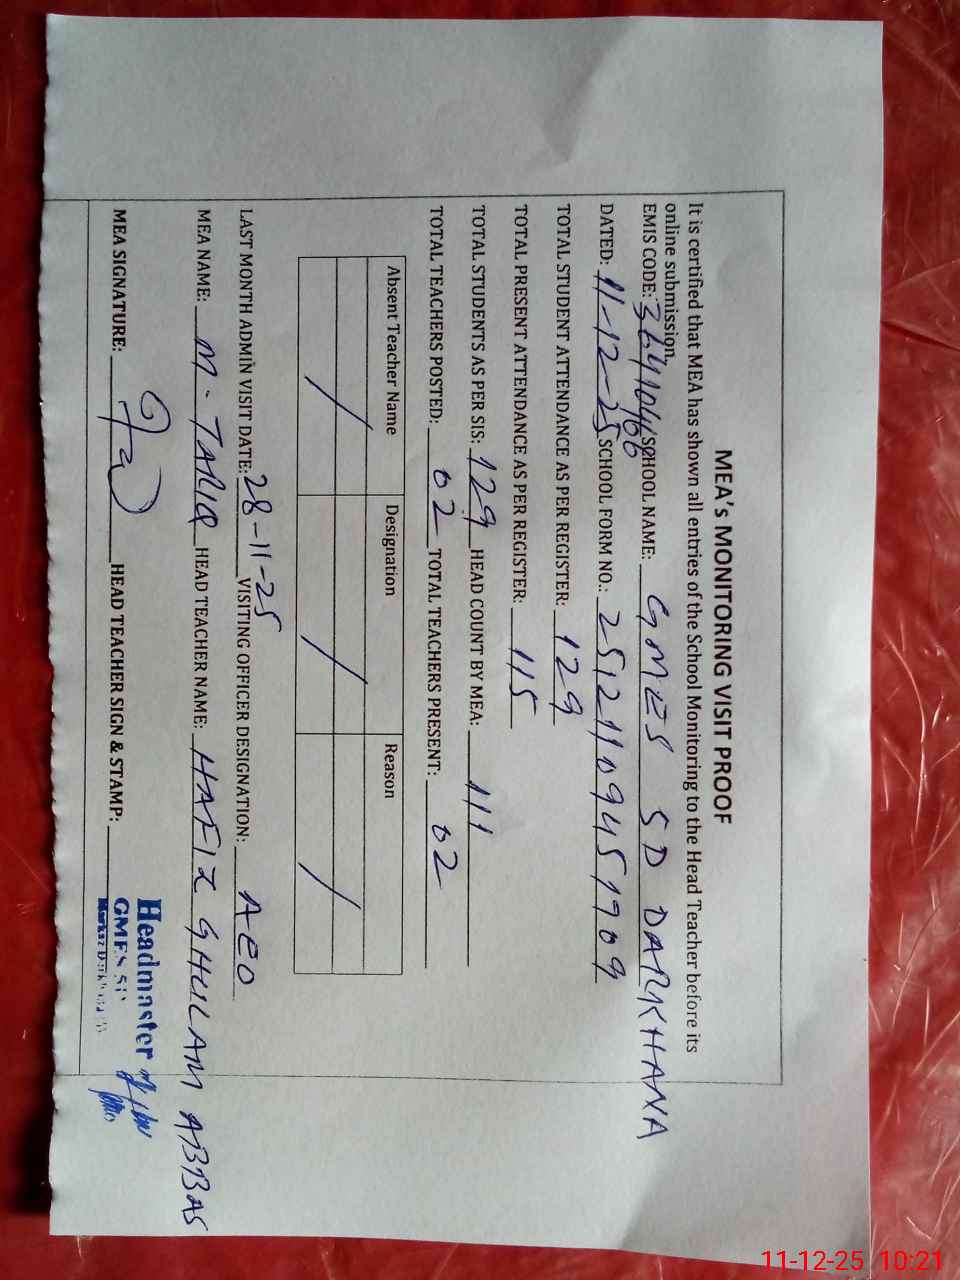 MEA's MONITORING VISIT PROOF
It is certified that MEA has shown all entries of the School Monitoring to the Head Teacher before its
online submission.
EMIS CODE: 36410466 SCHOOL NAME: GMES SD DARKHANA
DATED: 11-12-25 SCHOOL FORM NO.: 25121109451909
TOTAL STUDENT ATTENDANCE AS PER REGISTER: 129
TOTAL PRESENT ATTENDANCE AS PER REGISTER: 115
TOTAL STUDENTS AS PER SIS: 129 HEAD COUNT BY MEA: 111
TOTAL TEACHERS POSTED: 02 TOTAL TEACHERS PRESENT: 02
Absent Teacher Name Designation Reason
/ / /
LAST MONTH ADMIN VISIT DATE: 28-11-25 VISITING OFFICER DESIGNATION: AEO
MEA NAME: M. TARIQ HEAD TEACHER NAME: HAFIZ GHULAM ABBAS
MEA SIGNATURE: HEAD TEACHER SIGN & STAMP:
Headmaster
GMES
Markaz
11-12-25 10:21